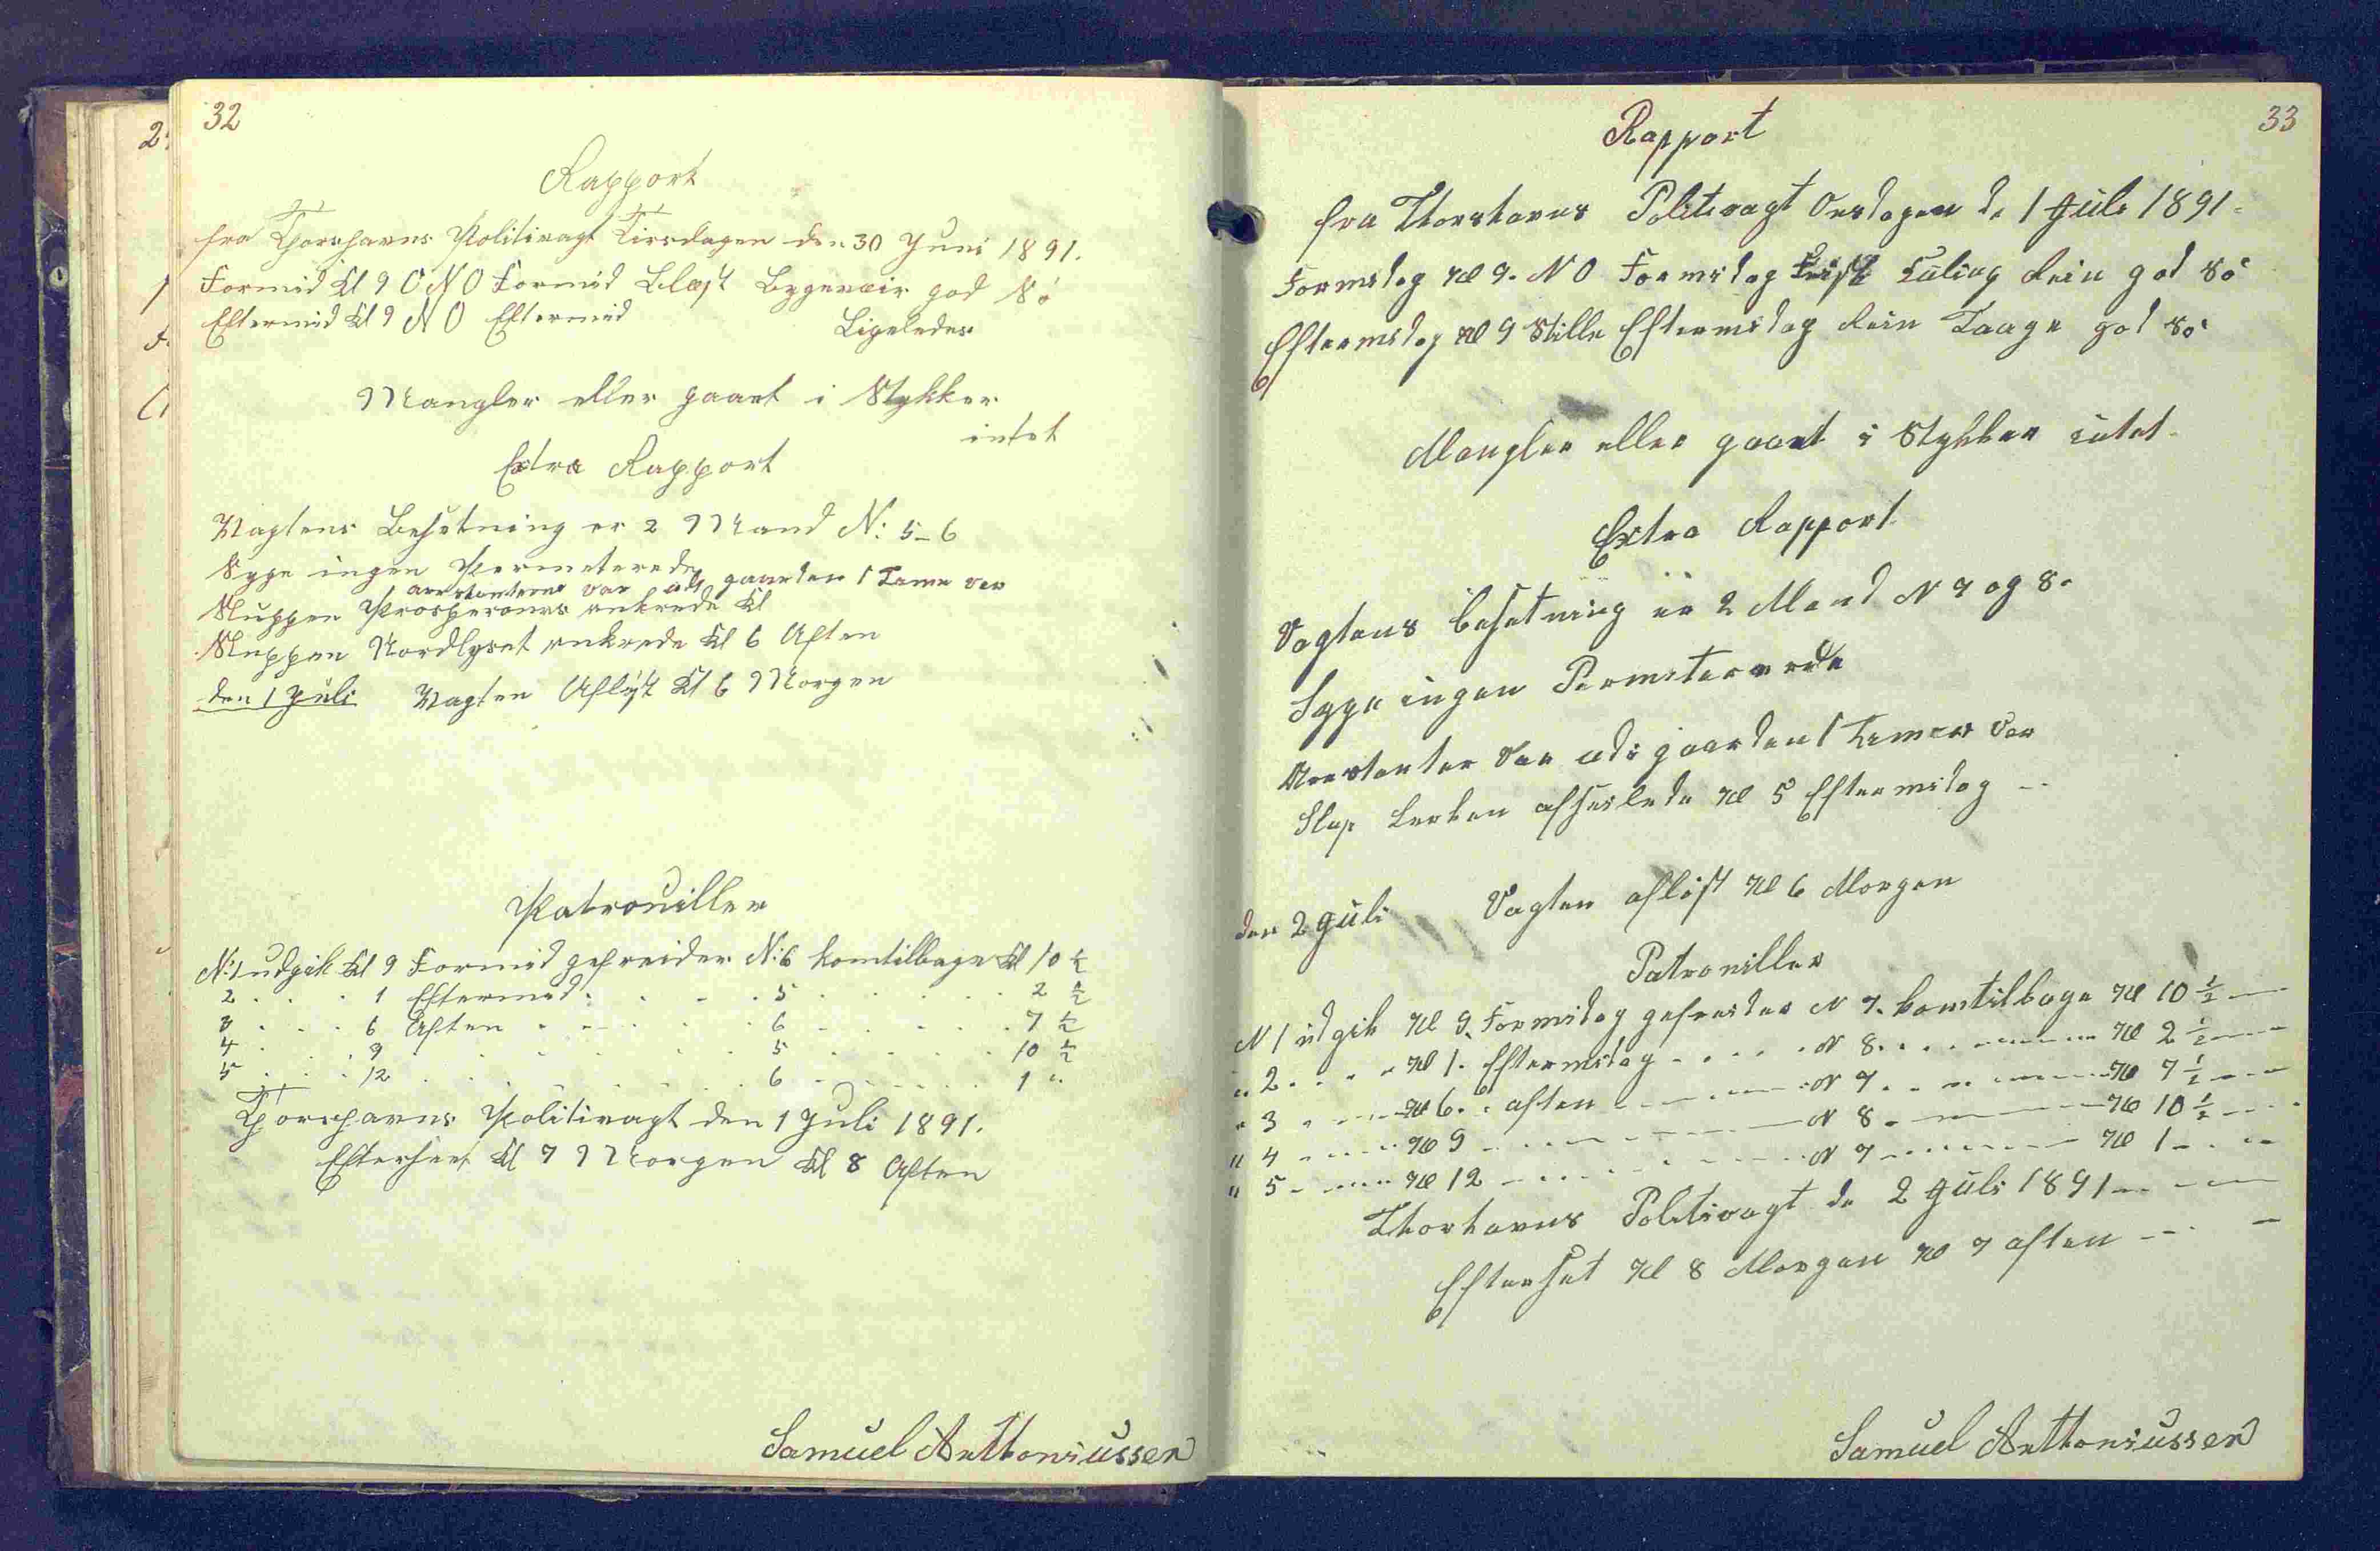 32
Rapport
fra Thorshavns Politivagt Tirsdagen den 30 Juni 1891.
Formid Kl 9 ONO Formid Blæst Bygeveir god Sö
Eftermid Kl 9 NO Eftermid Ligeledes
Mangler eller gaaet i Stykker
intet
Extra Rapport
Vagtens Besetning er 2 Mand N: 5-6
Syge ingen Permeterede
arestanterne var udi gaarden 1 Time ver
Sluppen ankrede Kl
Sluppen Nordlyset ankrede Kl 6 Aften
den 1 Juli Vagten Aflöst Kl 6 Morgen
Patrouiller
N: 1 udgik Kl 9 Formid gefreider N: 6 komtilbage Kl 10 1/2
2 . . . 1 Eftermid . . . . 5 . . . . . 2 1/2
3 . . . 6 Aften . . . . . 6 . . . . . 7 1/2
4 . . . 9 . . . . . . 5 . . . . . 10 1/2
5 . . . 12 . . . . . . 6 . . . . . 1 "
Thorshavns Politivagt den 1 Juli 1891.
Efterseet Kl 7 Morgen Kl 8 Aften
Samuel Anthoniussen
33
Rapport
fra Thorshavns Politivagt Onsdagen d. 1 Juli 1891.
Formidag Kl 9. NO Formidag frisk Kuling Rein god Sö
Eftermidag Kl 9 Stille Eftermidag Rein Taage god Sö
Mangler eller gaaet i Stykker intet.
Extra Rapport
Vagtens besetning er 2 Mand N 7 og 8.
Syge ingen Permiterede
Arestanter var udi gaarden 1 Time ver
Slup afseilede Kl 5 Eftermidag
den 2 Juli Vagten aflöst Kl 6 Morgen
Patrouiller
N 1 udgik Kl 9. Formidag gefreider N 7. komtilbage Kl 10 1/2
" 2 . . . . Kl 1. Eftermidag . . . . . N 8 . . . . Kl 2 1/2
" 3 . . . . Kl 6. aften . . . . N 7 . . . . Kl 7 1/2
" 4 . . . . Kl 9 . . . . N 8 . . . . Kl 10 1/2
" 5 . . . . Kl 12 . . . . N 7 . . . . Kl 1
Thorhavns Politivagt d. 2 Juli 1891
Efterset Kl 8 Morgen Kl 7 aften
Samuel Anthoniussen